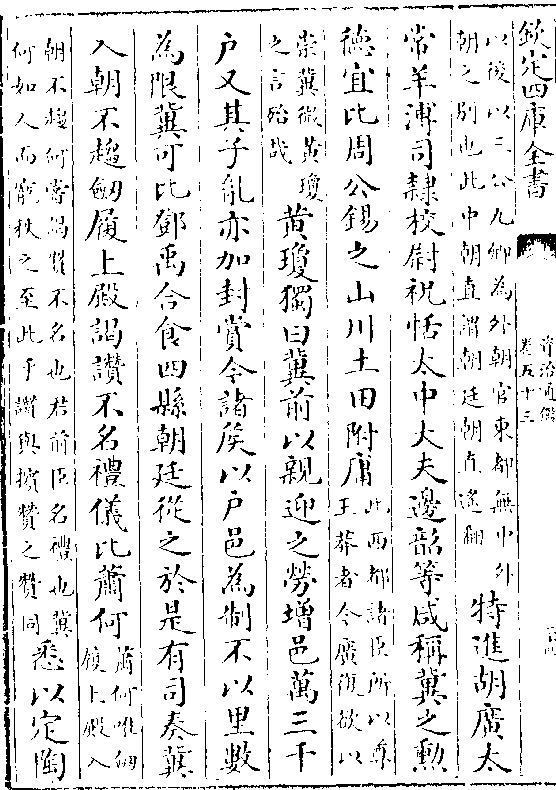 欽定四庫全書
資治通鑑
卷五十三
以後以三公九卿為外朝官東都無中外
朝之别也此中朝直謂朝廷朝直遥翻
特進胡廣太
常羊溥司隸校尉祝恬太中大夫邊韶等咸稱冀之勲
德宜比周公錫之山川土田附庸
此西都諸臣所以尊
王莽者今廣復欲以
崇冀微黄瓊
之言殆哉
黄瓊獨曰冀前以親迎之勞增邑萬三千
户又其子亂亦加封賞今諸侯以户邑為制不以里數
為限冀可比鄧禹合食四縣朝廷從之於是有司奏冀
入朝不趨劒履上殿謁讚不名禮儀比蕭何
蕭何唯劒
履上殿入
朝不趨何嘗謁贊不名也君前臣名禮也冀
何如人而寵秩之至此乎讚與擯贊之贊同
悉以定陶